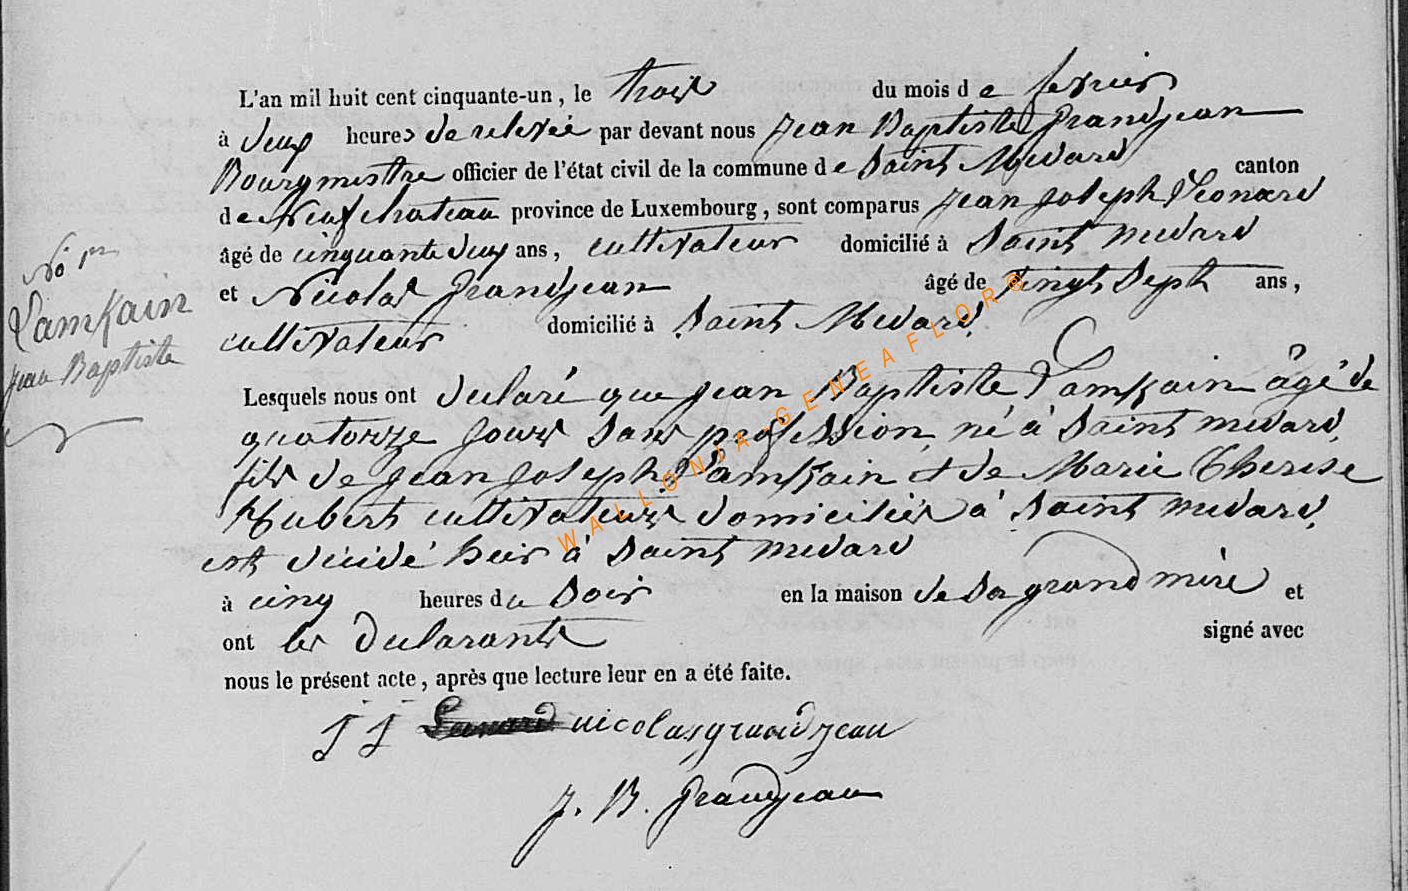 L'an mil huit cent cinquante-un, le trois du mois de fevrier
à deux heures de relevée par devant nous Jean Baptiste Grandjean
Bourgmestre officier de l'état civil de la commune de Saint Medard canton
de Neufchateau province de Luxembourg, sont comparus Jean Joseph Leonard
âgé de cinquante deux ans, cultivateur domicilié à Saint medard
et Nicolas Grandjean âgé de vingt Sept ans,
cultivateur domicilié à Saint Medard
No 1er
Lamkain
Jean Baptiste
Lesquels nous ont declaré que jean Baptiste Lamkain âgé de
quatorze jours sans profession né à Saint medard,
fils de jean joseph Lamkain et de Marie Therese
Hubert cultivateurs domiciliés à Saint medard,
est décédé hier à Saint medard
à cinq heures du Soir en la maison de Sa grand mère et
ont les declarants signé avec
nous le présent acte, après que lecture leur en a été faite.
j j Leonard nicolas grandjean
J. B. Grandjean
WALLONIA-GENEAFLOR@